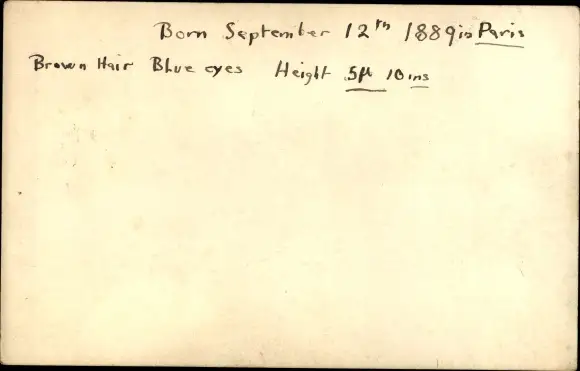 Born September 12th 1889 in Paris
Brown Hair Blue eyes Height 5ft 10 ins